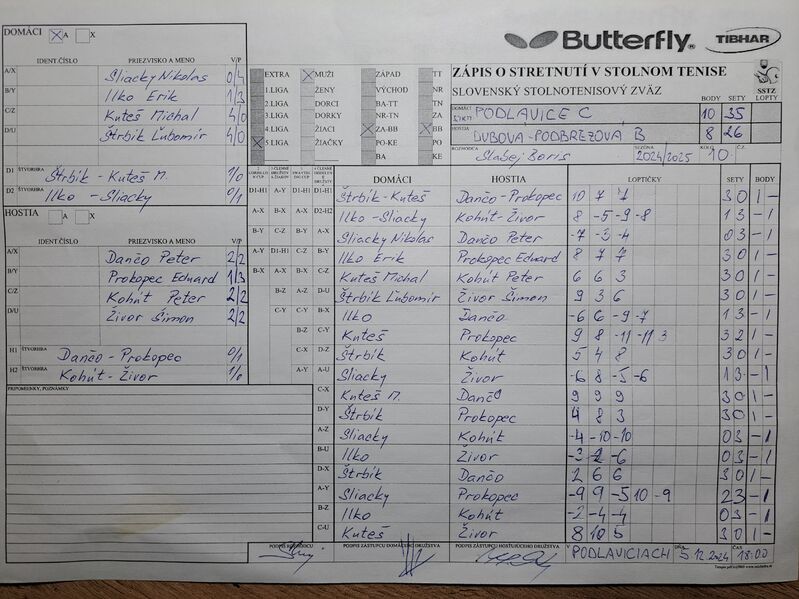 DOMÁCI A X
IDENT.ČÍSLO PRIEZVISKO A MENO V/P
A/X Sliacky Nikolas 0/4
B/Y Ilko Erik 1/3
C/Z Kuteš Michal 4/0
D/U Štrbík Ľubomír 4/0
D1 ŠTVORHRA Štrbík - Kuteš M. 1/0
D2 ŠTVORHRA Ilko - Sliacky 0/1
HOSTIA A X
IDENT.ČÍSLO PRIEZVISKO A MENO V/P
A/X Dančo Peter 2/2
B/Y Prokopec Eduard 1/3
C/Z Kohút Peter 2/2
D/U Živor Šimon 2/2
H1 ŠTVORHRA Dančo - Prokopec 0/1
H2 ŠTVORHRA Kohút - Živor 1/0
PRIPOMIENKY, POZNÁMKY
EXTRA MUŽI ZÁPAD TT
1.LIGA ŽENY VÝCHOD NR
2.LIGA DORCI BA-TT TN
3.LIGA DORKY TN-NR
4.LIGA ŽIACI ZA-BB BB
5.LIGA ŽIAČKY PO-KE
BA KE
Butterfly TIBHAR
ZÁPIS O STRETNUTÍ V STOLNOM TENISE
SLOVENSKÝ STOLNOTENISOVÝ ZVÄZ
SSTZ
BODY SETY LOPTY
DOMÁCI PODLAVICE C 10 35
HOSTIA DUBOVÁ-PODBREZOVÁ B 8 26
ROZHODCA Slašej Boris SEZÓNA 2024/2025 KOLO 10. Č.Z.
DOMÁCI HOSTIA LOPTIČKY SETY BODY
D1-H1 A-Y B-X D1-H1 Štrbík - Kuteš Dančo - Prokopec 10 7 7 3 0 1 -
A-X B-X A-X D2-H2 Ilko - Sliacky Kohút - Živor 8 -5 -9 -8 1 3 - 1
B-Y C-Z B-Y A-X Sliacky Nikolas Dančo Peter -7 -3 -4 0 3 - 1
A-Y D1-H1 C-Z B-Y Ilko Erik Prokopec Eduard 8 7 7 3 0 1 -
B-X A-X B-X C-Z Kuteš Michal Kohút Peter 6 6 3 3 0 1 -
B-Z A-Z D-U Štrbík Ľubomír Živor Šimon 9 3 6 3 0 1 -
C-Y C-Y B-X Ilko Dančo -6 6 -9 -7 1 3 - 1
B-Z C-Y Kuteš Prokopec 9 8 -11 -11 3 3 2 1 -
C-X D-Z Štrbík Kohút 5 4 8 3 0 1 -
A-Y A-U Sliacky Živor -6 8 -5 -6 1 3 - 1
C-X Kuteš M. Dančo 9 9 9 3 0 1 -
D-Y Štrbík Prokopec 4 8 3 3 0 1 -
A-Z Sliacky Kohút -4 -10 -10 0 3 - 1
B-U Ilko Živor -3 -2 -6 0 3 - 1
D-X Štrbík Dančo 2 6 6 3 0 1 -
A-Y Sliacky Prokopec -9 9 -5 10 -9 2 3 - 1
B-Z Ilko Kohút -2 -4 -4 0 3 - 1
C-U Kuteš Živor 8 10 5 3 0 1 -
PODPIS ROZHODCU PODPIS ZÁSTUPCU DOMÁCEHO DRUŽSTVA PODPIS ZÁSTUPCU HOSŤUJÚCEHO DRUŽSTVA V PODLAVICIACH DŇA 5.12.2024 ČAS 18:00